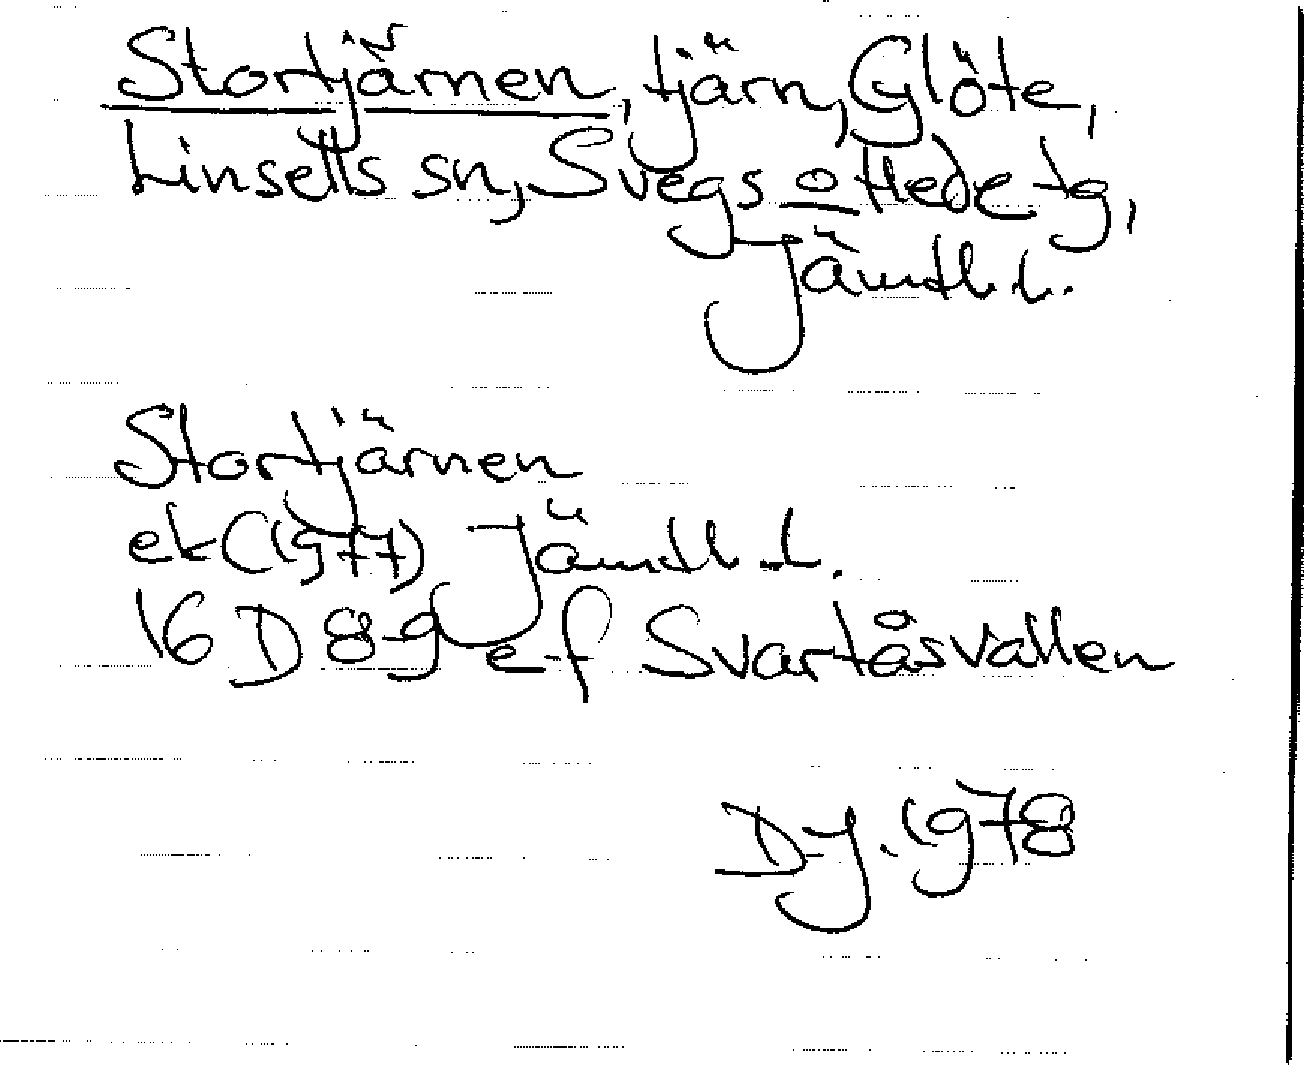 Stortjärnen, tjärn, Glöte,
Linsells sn, Svegs o Hede tg,
Jämtl. l.
Stortjärnen
ek (1977) Jämtl. l.
16 D 8-9 e-f Svartåsvallen
DJ. 1978